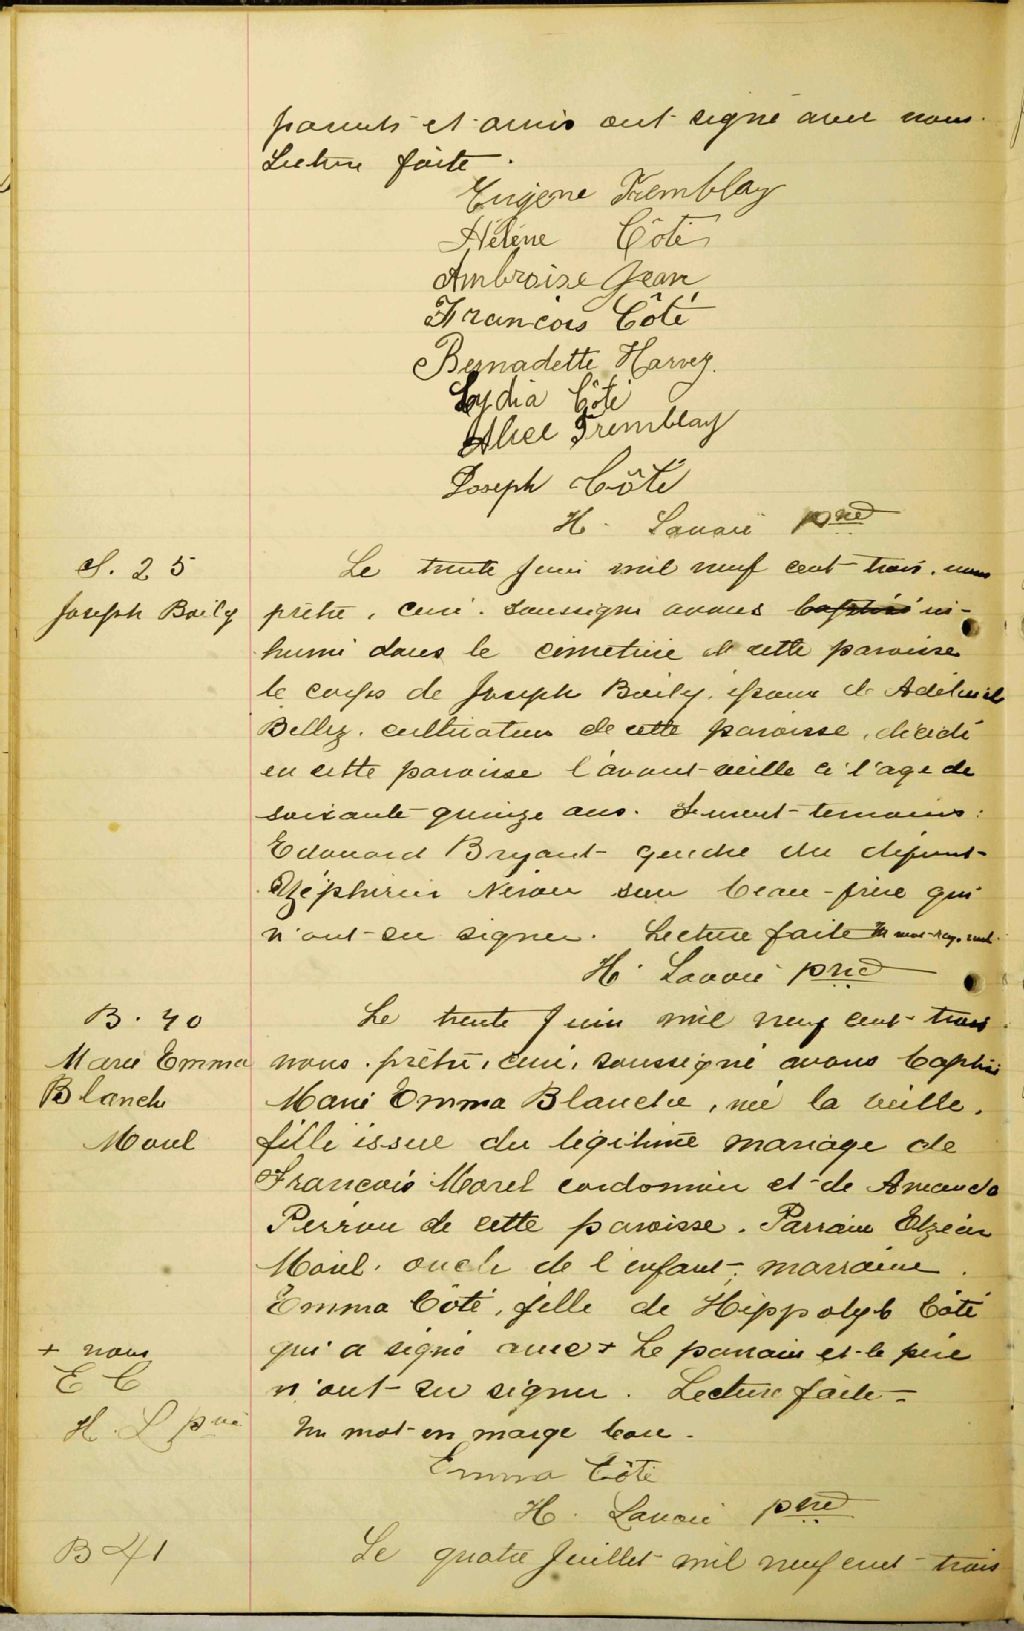 parents et amis ont signé avec nous.
Lecture faite.
Eugène Tremblay
Hélène Côté
Ambroise Jean
François Côté
Bernadette Harvey.
Lydia Côté
Alice Tremblay
Joseph Côté
H. Lavoie ptre
S. 25
Joseph Boily
Le trente Juin mil neuf cent trois, nous
prêtre, curé, soussigné avons baptisé in-
humé dans le cimetière de cette paroisse
le corps de Joseph Boily, époux de
Belley, cultivateur de cette paroisse, décédé
en cette paroisse l'avant-veille à l'age de
soixante quinze ans. Furent temoins:
Edouard Bryant gendre du défunt
Zéphirin Néron son beau-frère qui
n'ont su signer. Lecture faite Un mot ray. nul.
H. Lavoie ptre
B. 40
Marie Emma
Blanche
Morel
Le trente Juin mil neuf cent trois
nous, prêtre, curé, soussigné avons baptisé
Marie Emma Blanche, née la veille,
fille issue du légitime mariage de
François Morel cordonnier et de Amanda
Perron de cette paroisse. Parrain Elzéar
Morel, oncle de l'enfant, marraine
Emma Côté, fille de Hippolyte Côté
qui a signé avec + Le parrain et le père
n'ont su signer. Lecture faite -
+ nous
E C
H. L ptre
Un mot en marge bon.
Emma Côté
H. Lavoie ptre
B 41
Le quatre Juillet mil neuf cent trois